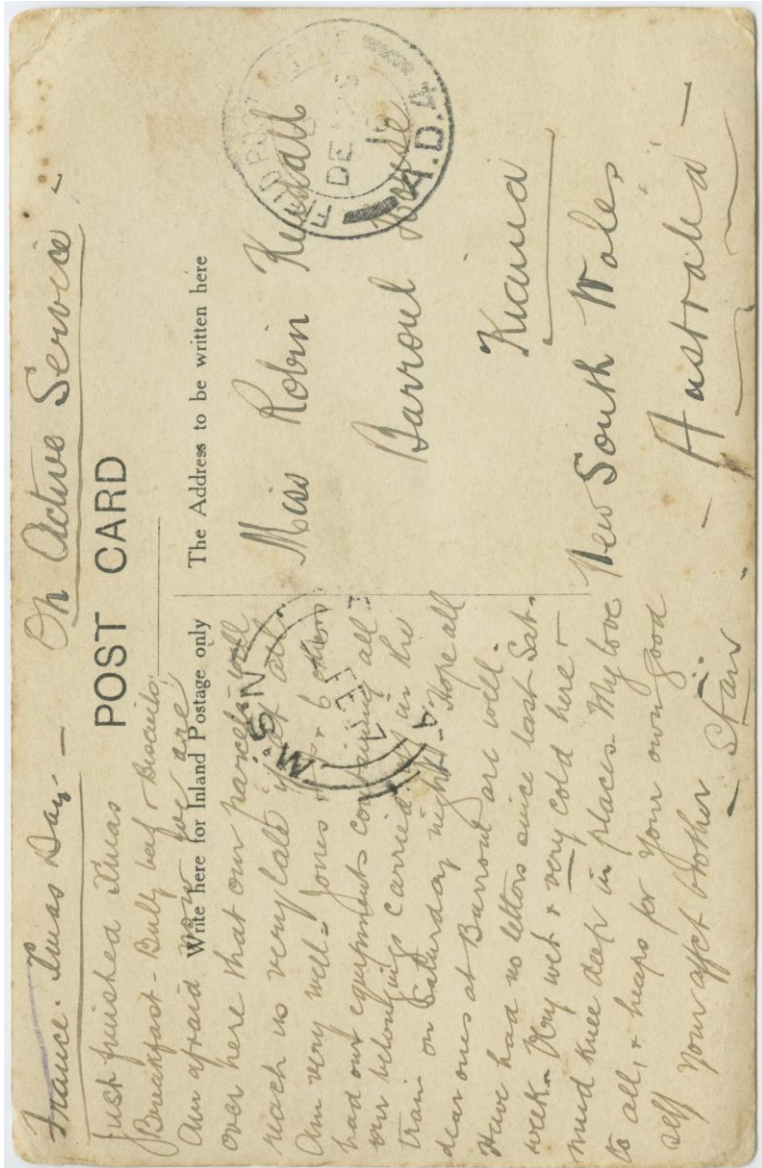 France. Xmas Day - On Active Service -
POST CARD
Write here for Inland Postage only
The Address to be written here
Just finished Xmas
Breakfast - Bully beef & Biscuits.
Am afraid now we are
over here that our parcels will
reach us very late if at all.
Am very well - Jones & 6 others
had our equipments containing all
our belongings carried in the
train on Saturday night - Hope all
dear ones at Barroul are well.
Have had no letters since last Sat.
week. Very wet & very cold here &
mud knee deep in places. My love
to all, & heaps for your own good
self Your affect brother
Miss Robin Kendall
Barroul House
Kiama
New South Wales
- Australia -
FIELD POST
DE 25
16
A.D.A
N.S.W